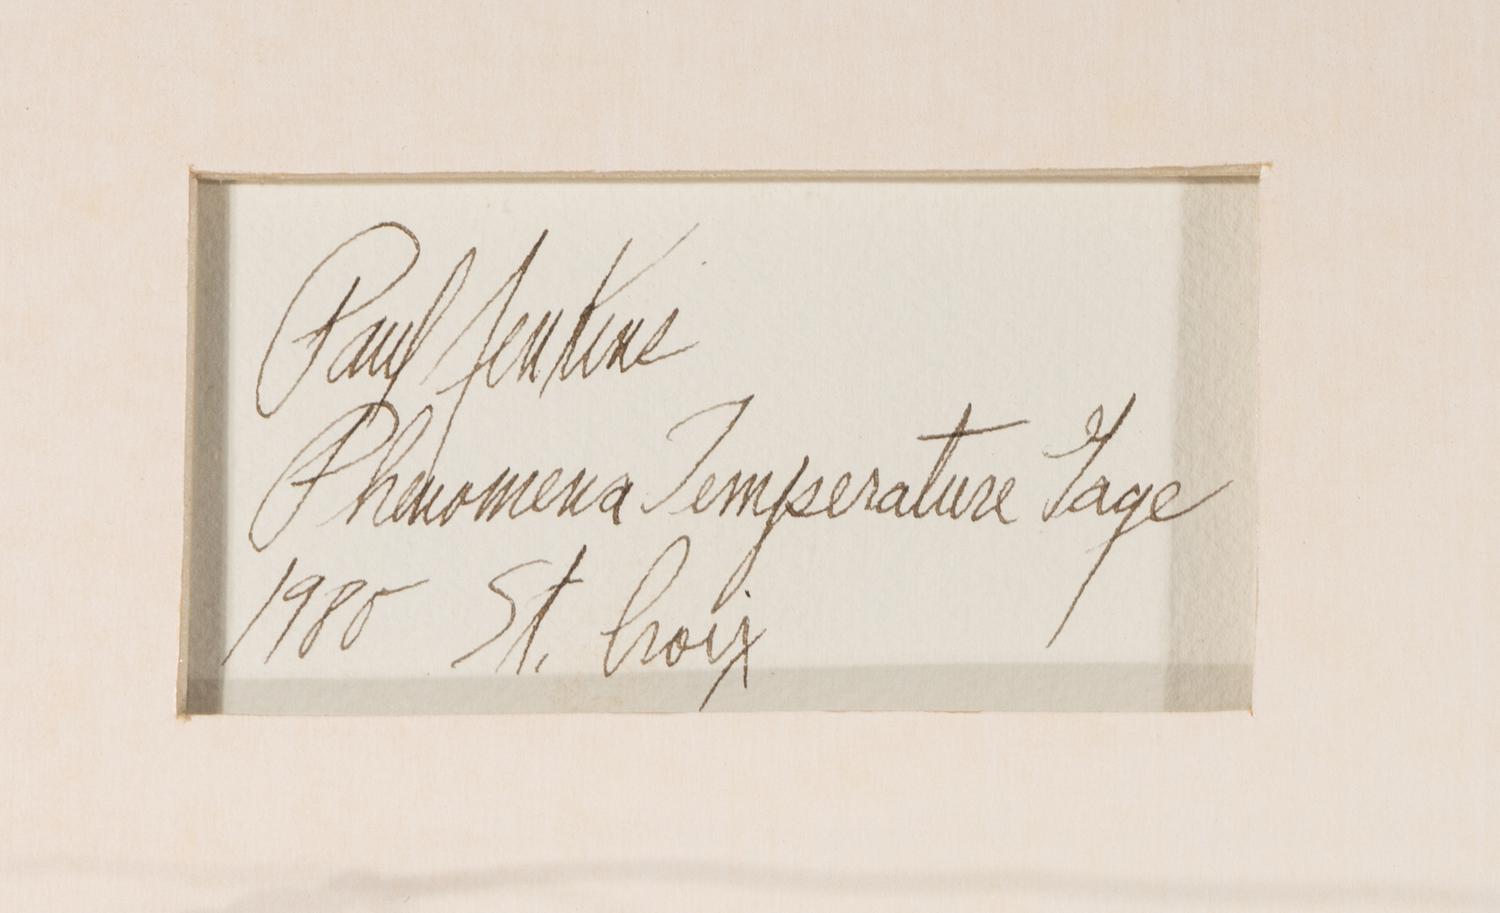 Paul Jenkins
Phenomena Temperature Gage
1980 St. Croix